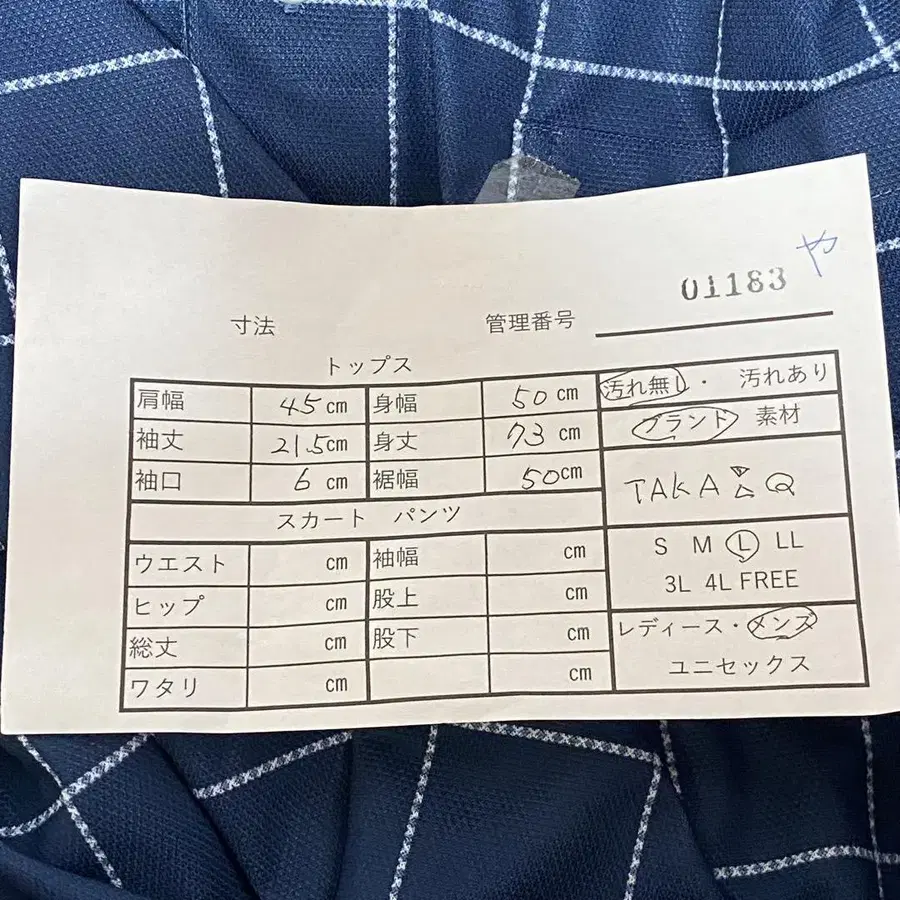 や
寸法 管理番号 01183
トップス
肩幅 45 cm 身幅 50 cm 汚れ無し・ 汚れあり
袖丈 21.5cm 身丈 73 cm ブランド 素材
袖口 6 cm 裾幅 50cm TAKA Q
スカート パンツ
ウエスト cm 袖幅 cm S M L LL
ヒップ cm 股上 cm 3L 4L FREE
総丈 cm 股下 cm レディース・メンズ
ワタリ cm cm ユニセックス